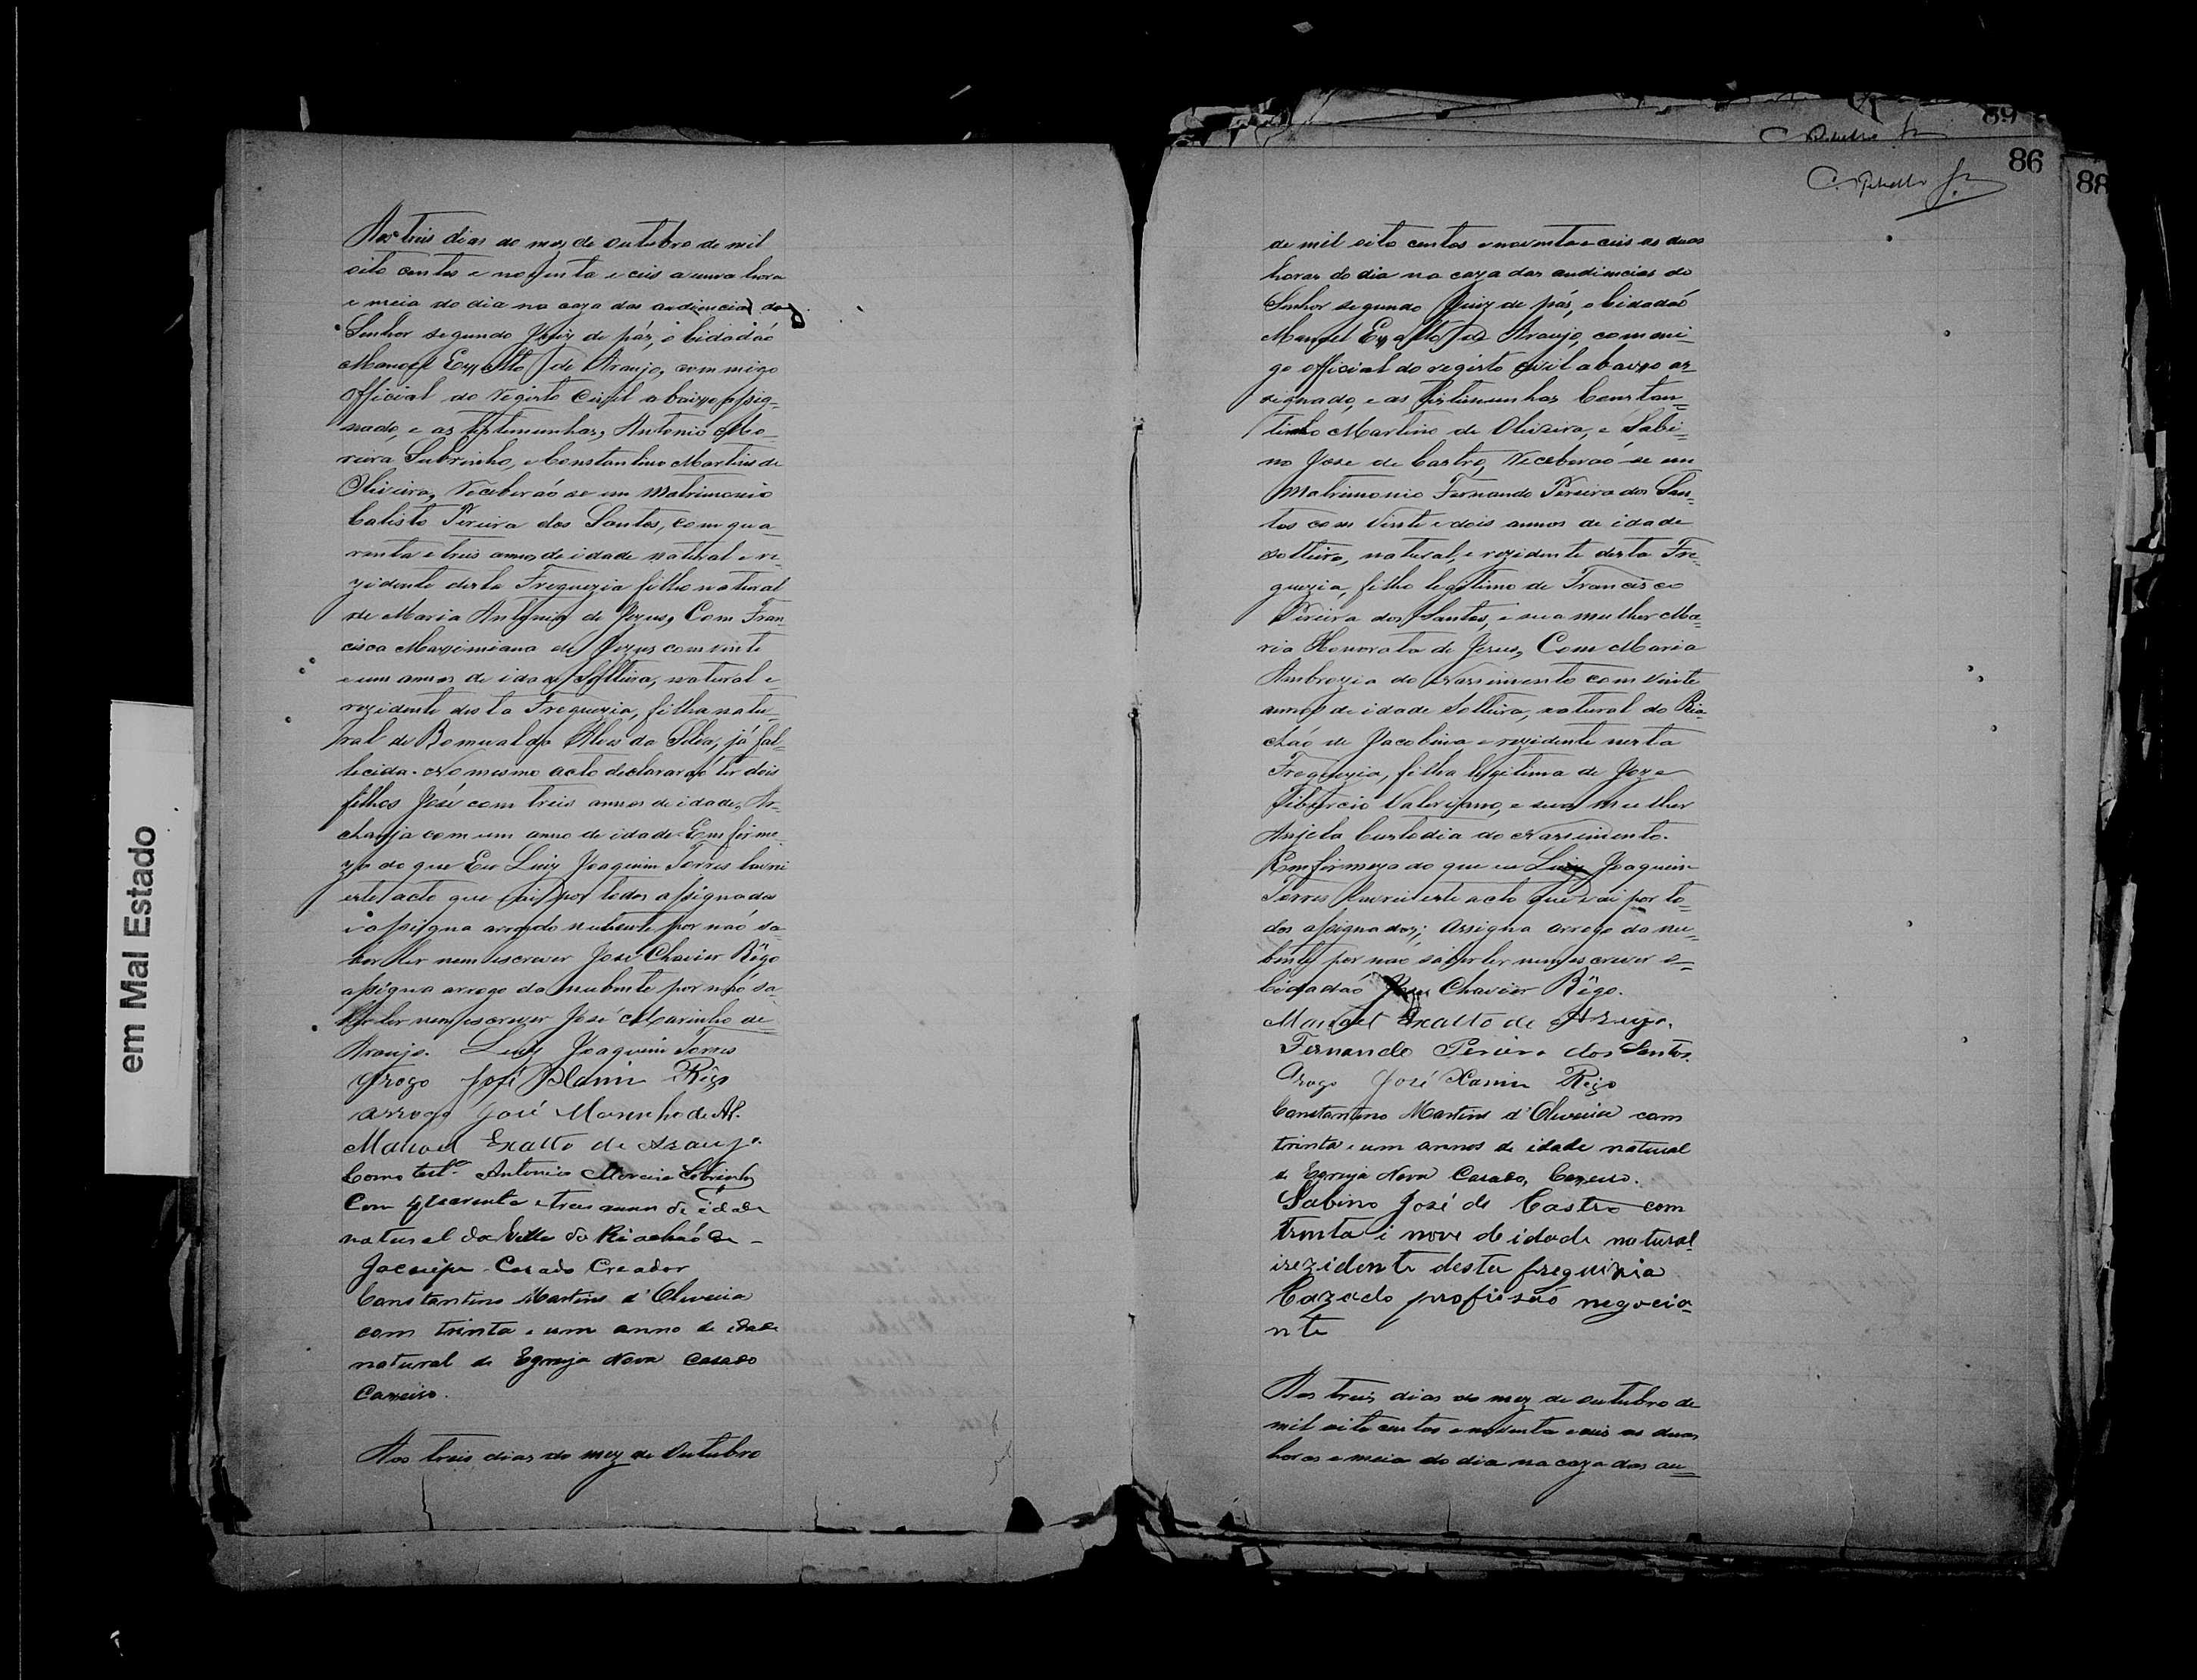 em Mal Estado
Aos treis dias do mez de outubro de mil
oito centos e noventa e ceis a uma hora
e meia do dia na caza das audiencias do
Senhor segundo Juiz de páz, o Cidadaõ
Manoel Exalto de Araujo, com migo
official do registo Civil abaixo assig=
nado, e as testemunhas, Antonio Mo=
reira Subrinho, e Constantino Martins de
Oliveira, Receberaõ se em Matrimonio
Calisto Pereira dos Santos, com qua=
renta e treis annos de idade natural e re=
zidente desta Freguezia filho natural
de Maria Antonia de Jezus, Com Fran
cisca Maximiana de Jezus com vinte
e um annos de idade Solteira, natural e
rezidente desta Freguezia, filha natu=
ral de Romualda Alves da Silva, já fal=
lecida. No mesmo acto declararaõ ter dois
filhos José com treis annos de idade, Ar=
chanja com um anno de idade. Em firme
za do que Eu Luiz Joaquim Torres lavrei
este acto que vai por todos assignados
i assigna arrogo do nubente por naõ sa=
ber ler nem escrever José Chavier Rêgo
assigna arrogo da nubente por naõ sa=
ber ler nem escrever José Marinho de
Araujo. Luiz Joaquim Torres
Arogo José Xavier Rêgo
Arrogo José Marinho de Ar.
Manoel Exalto de Araujo
Como test.ª Antonio Moreira Sobrinho
Com quarenta e tres annos de idade
natural da Villa do Riachaõ de
Jacuipe Casado Creador
Constantino Martins d'Oliveira
com trinta e um anno de idade
natural de Egreja Nova Casado
Caxeiro.
Aos treis dias do mez de Outubro
89
86
88
de mil oito centos e noventa e ceis as duas
horas do dia na caza das audiencias do
Senhor segundo Juiz de páz, o Cidadaõ
Manoel Exalto de Araujo, com mi=
go official do registo civil abaixo as=
signado, e as testemunhas Constan=
tino Martins de Oliveira, e Sabi=
no José de Castro, Receberaõ-se em
Matrimonio Fernando Pereira dos San=
tos com vinte e dois annos de idade
solteiro, natural, e rezidente desta Fre=
guezia, filho legitimo de Francisco
Pereira dos Santos, e sua mulher Ma=
ria Honorata de Jesus, Com Maria
Ambrozia do Nassimento com vinte
annos de idade Solteira, natural do Ria
chaõ de Jacobina e rezidente nesta
Freguezia, filha legitima de Joze
Tiburcio Valeriano, e sua mulher
Anjela Custodia do Nassimento.
Em firmeza do que eu Luiz Joaquim
Torres lavrei este acto que vai por to=
dos assignados; Assigna arrogo da nu=
bente por naõ saber ler nem escrever o
Cidadaõ José Chavier Rêgo.
Manoel Exalto de Araujo.
Fernando Pereira dos Santos.
Arogo José Xavier Rêgo
Constantino Martins d'Oliveira com
trinta e um annos de idade natural
de Egreja Nova Casado, Caxeiro.
Sabino José de Castro com
trinta i nove de idade natural
irezidente desta freguizia
Cazado profissaõ negocia=
nte
Aos treis dias do mez de outubro de
mil oito centos e noventa e ceis as duas
horas e meia do dia na caza das au=